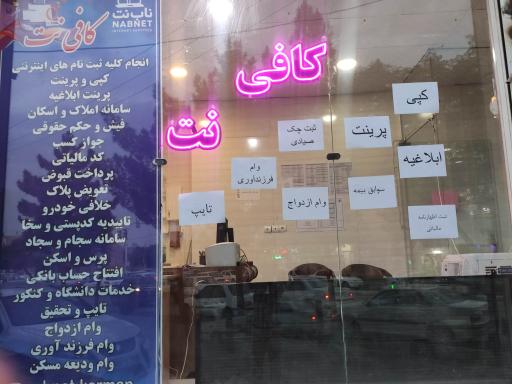 ناب نت
NABNET
INTERNET SERVICES
کافی نت
انجام کلیه ثبت نام های اینترنتی
کپی و پرینت
پرینت ابلاغیه
سامانه املاک و اسکان
فیش و حکم حقوقی
جواز کسب
کد مالیاتی
پرداخت قبوض
تعویض پلاک
خلافی خودرو
تاییدیه کدپستی و سخا
سامانه سجام و سجاد
پرس و اسکن
افتتاح حساب بانکی
خدمات دانشگاه و کنکور
تایپ و تحقیق
وام ازدواج
وام فرزند آوری
وام ودیعه مسکن
کافی
نت
کپی
ثبت چک
صیادی
پرینت
ابلاغیه
وام
فرزندآوری
سوابق بیمه
وام ازدواج
تایپ
ثبت اظهارنامه
مالیاتی